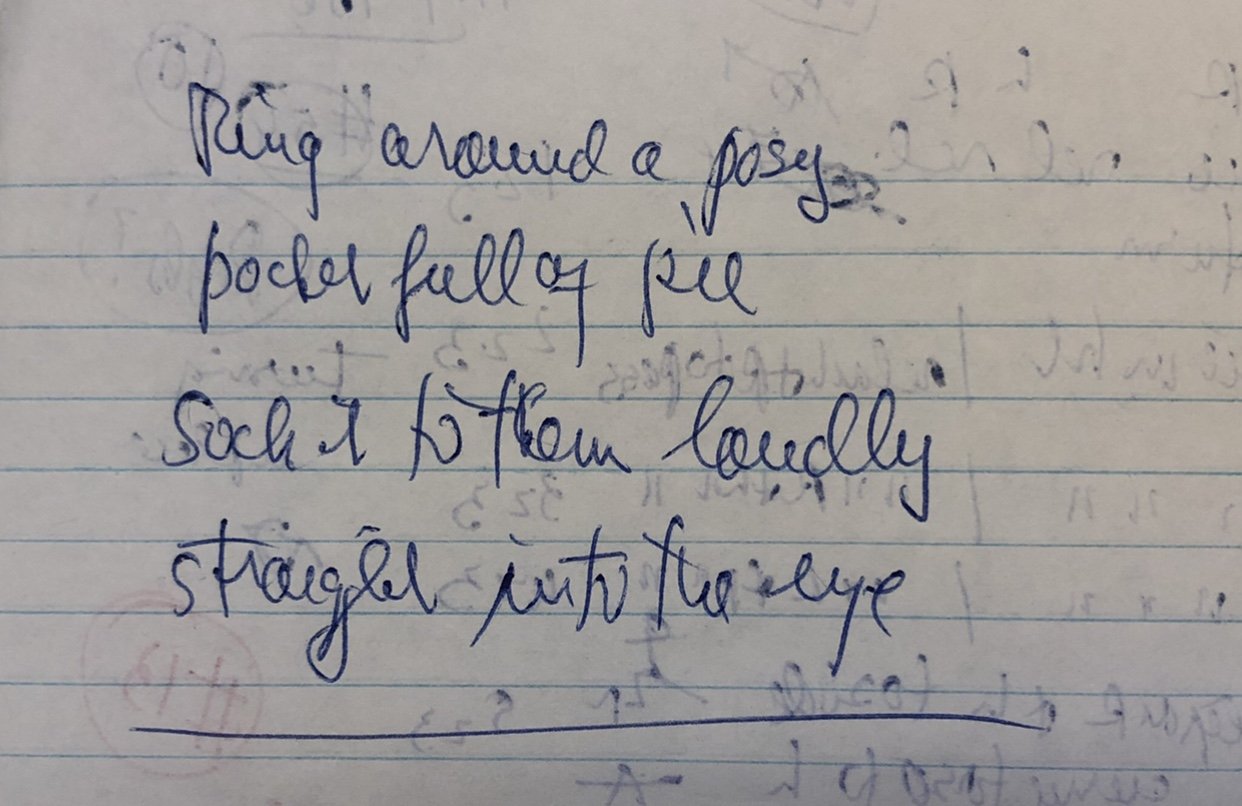 Ring around a posy
pocket full of pie
Sock it to them loudly
straight into the eye